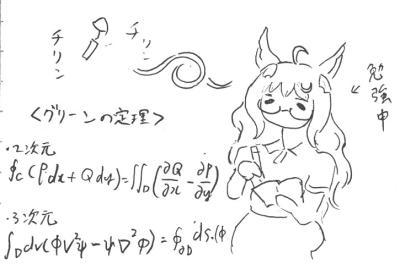 チリン
チリン
勉強中
<グリーンの定理>
・2次元
∮c(Pdx+Qdy)=∬D(∂Q/∂x-∂P/∂y)
・3次元
∫D dv(φ∇²ψ-ψ∇²φ)=∮∂D ds・(φ